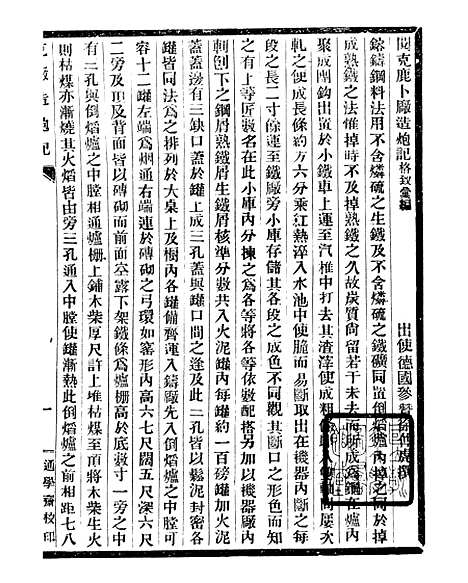 閱克鹿卜廠造炮記格致彙編
出使德國參贊徐建寅撰
鎔鑄鋼料法用不含燐硫之生鐵及不含燐硫之鐵礦同置倒熖爐內掉之同於掉
成熟鐵之法惟掉時不及掉熟鐵之久故炭質尙留若干未去而所成爲鋼在爐內
聚成團鈎出置於小鐵車上運至汽椎中打去其渣滓使成粗條段入軋軸間屢次
軋之使成長條約方六分乘紅熱淬入水池中使脆而易斷取出在機器內斷之每
段之長二寸條運至鐵廠旁小庫存儲其各段之成色不同觀其斷口之形色而知
之有上等匠數名在此小庫內分揀之爲各等將各等依數配搭另加以機器廠內
刨下之鋼屑熟鐵屑生鐵屑核準分數共入火泥罐內每罐約一百磅罐加火泥
蓋蓋邊有三缺口蓋於罐上成三孔蓋與罐口間之逢及此三孔皆以鬆泥封密各
罐皆同法爲之排列於大桌上及櫥內各罐備齊運入鑄廠先入倒熖爐之中膛可
容十二罐左端爲烟通右端連於磚砌之弓環如窰形內高六七尺闊五尺深六尺
二旁及頂及背面皆以磚砌而前面空露下架鐵條爲爐柵高於底數寸一旁之中
有二孔與倒熖爐之中膛相通爐柵上鋪木柴厚尺許上堆枯煤至頂將木柴生火
則枯煤亦漸燒其火熖皆由旁三孔通入中膛使罐漸熱此倒熖爐之前面相距七八
克鹿造炮記
一
通學齋校印